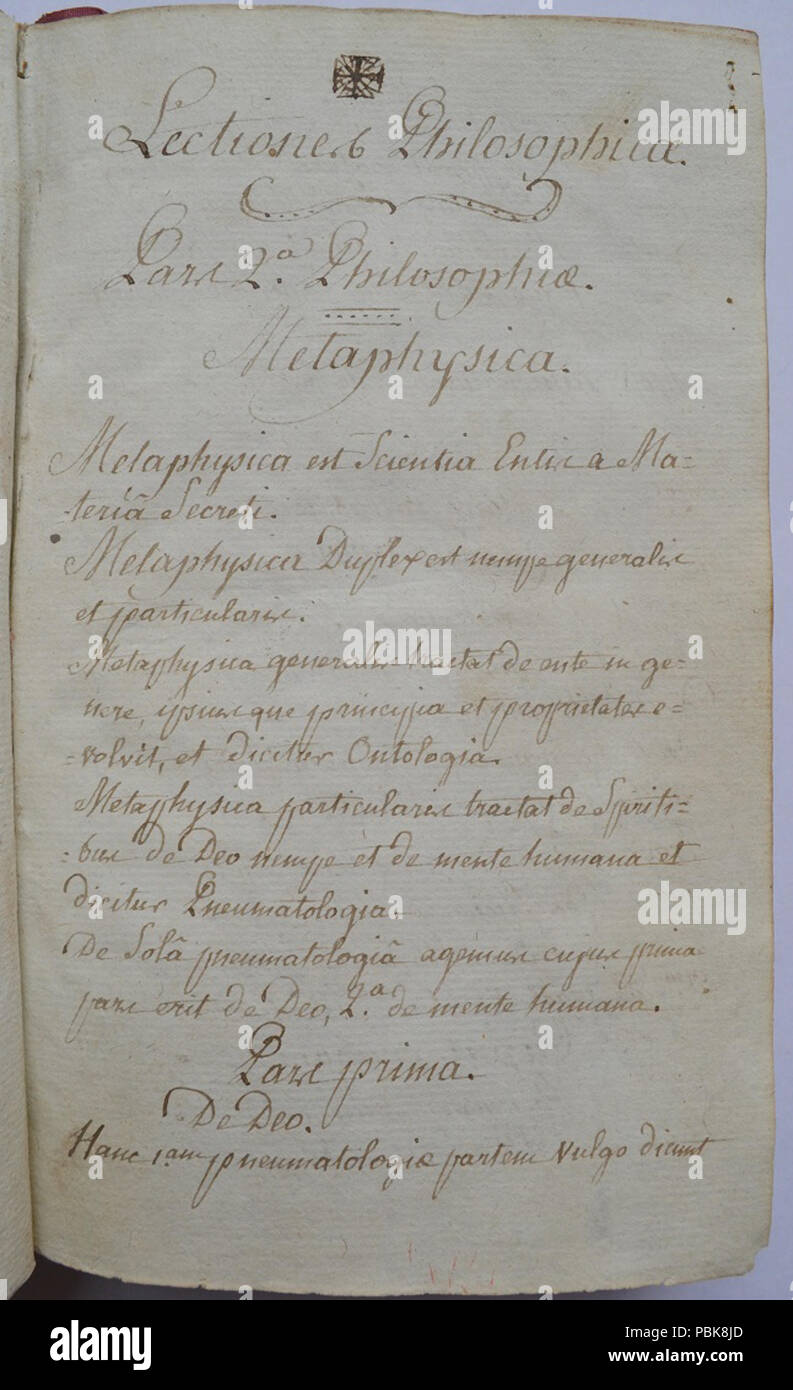 Lectiones Philosophicæ.
Pars 2.a Philosophiæ.
Metaphysica.
Metaphysica est Scientia Entis a Ma=
teriâ Secreti.
Metaphysica Duplex est nempe generalis
et particularis.
Metaphysica generalis tractat de ente in ge=
nere, ipsiusque principia et proprietates e=
=volvit, et dicitur Ontologia.
Metaphysica particularis tractat de Spiriti=
=bus de Deo nempe et de mente humana et
dicitur Pneumatologia.
De Solâ pneumatologiâ agemus cujus prima
pars erit de Deo, 2.a de mente humana.
Pars prima.
De Deo.
Hanc 1.am pneumatologiæ partem vulgo dicunt
alamy
alamy
alamy
alamy
a a a a a a a a a a a a a
alamy
Image ID: PBK8JD
www.alamy.com